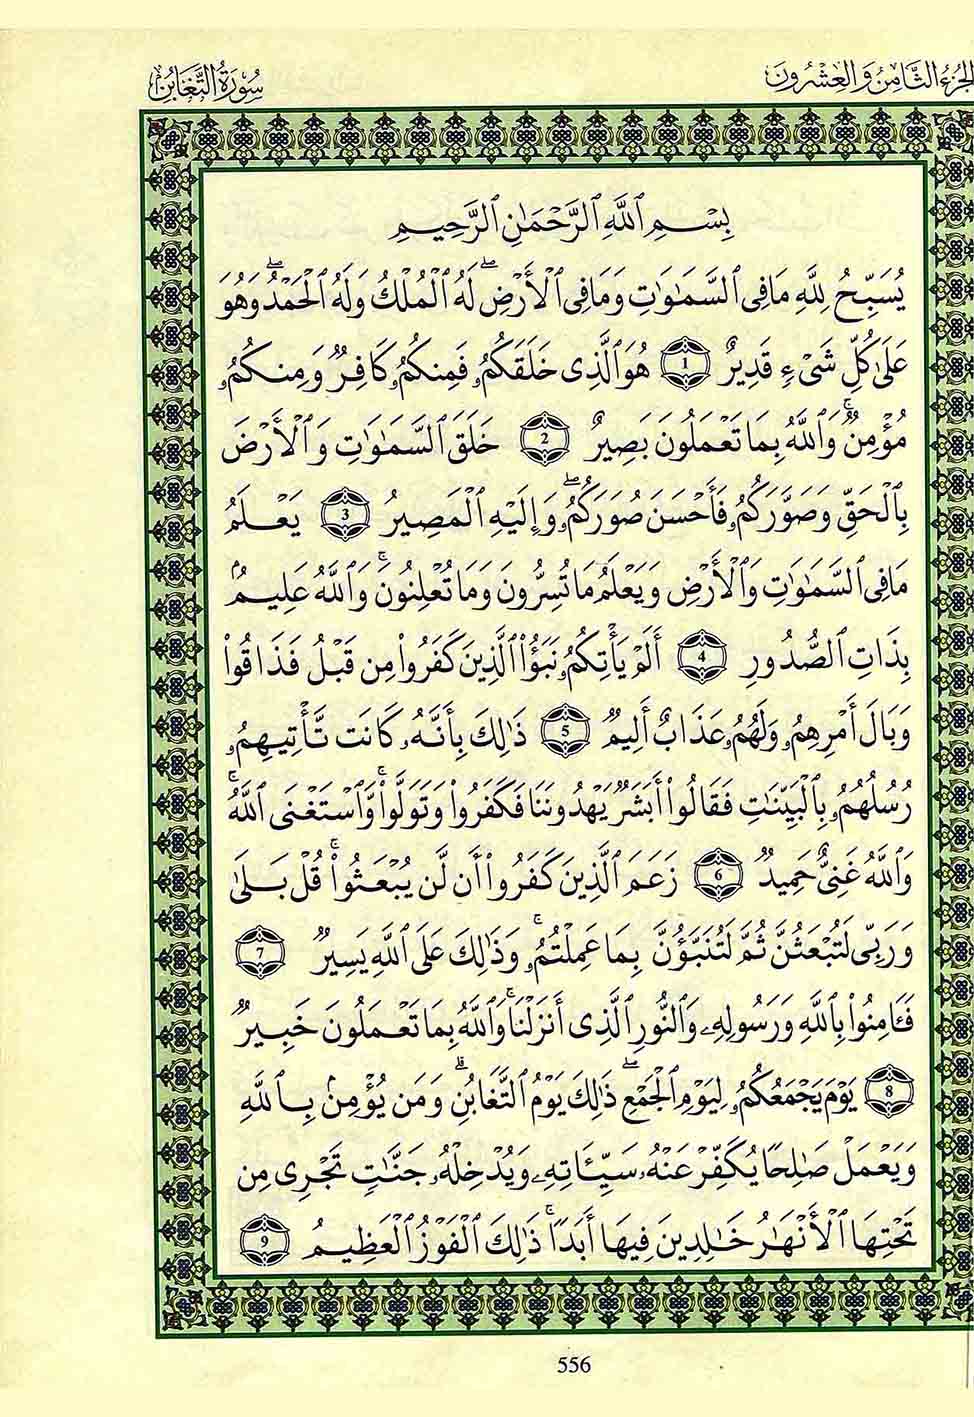 الجزء الثامن والعشرون
سورة التغابن
بِسْمِ ٱللَّهِ ٱلرَّحْمَٰنِ ٱلرَّحِيمِ
يُسَبِّحُ لِلَّهِ مَا فِى ٱلسَّمَٰوَٰتِ وَمَا فِى ٱلْأَرْضِ ۖ لَهُ ٱلْمُلْكُ وَلَهُ ٱلْحَمْدُ ۖ وَهُوَ
عَلَىٰ كُلِّ شَىْءٍ قَدِيرٌ 1 هُوَ ٱلَّذِى خَلَقَكُمُۥ فَمِنكُمُۥ كَافِرٌ وَمِنكُمُۥ
مُؤْمِنٌ ۚ وَٱللَّهُ بِمَا تَعْمَلُونَ بَصِيرٌ 2 خَلَقَ ٱلسَّمَٰوَٰتِ وَٱلْأَرْضَ
بِٱلْحَقِّ وَصَوَّرَكُمُۥ فَأَحْسَنَ صُوَرَكُمُۥ ۖ وَإِلَيْهِ ٱلْمَصِيرُ 3 يَعْلَمُ
مَا فِى ٱلسَّمَٰوَٰتِ وَٱلْأَرْضِ وَيَعْلَمُ مَا تُسِرُّونَ وَمَا تُعْلِنُونَ ۚ وَٱللَّهُ عَلِيمٌۢ
بِذَاتِ ٱلصُّدُورِ 4 أَلَمْ يَأْتِكُمُۥ نَبَؤُا۟ ٱلَّذِينَ كَفَرُوا۟ مِن قَبْلُ فَذَاقُوا۟
وَبَالَ أَمْرِهِمُۥ وَلَهُمُۥ عَذَابٌ أَلِيمٌ 5 ذَٰلِكَ بِأَنَّهُۥ كَانَت تَّأْتِيهِمُۥ
رُسُلُهُمُۥ بِٱلْبَيِّنَٰتِ فَقَالُوا۟ أَبَشَرٌ يَهْدُونَنَا فَكَفَرُوا۟ وَتَوَلَّوا۟ ۚ وَّٱسْتَغْنَى ٱللَّهُ ۚ
وَٱللَّهُ غَنِىٌّ حَمِيدٌ 6 زَعَمَ ٱلَّذِينَ كَفَرُوٓا۟ أَن لَّن يُبْعَثُوا۟ ۚ قُلْ بَلَىٰ
وَرَبِّى لَتُبْعَثُنَّ ثُمَّ لَتُنَبَّؤُنَّ بِمَا عَمِلْتُمُۥ ۚ وَذَٰلِكَ عَلَى ٱللَّهِ يَسِيرٌ 7
فَـَٔامِنُوا۟ بِٱللَّهِ وَرَسُولِهِۦ وَٱلنُّورِ ٱلَّذِى أَنزَلْنَا ۚ وَٱللَّهُ بِمَا تَعْمَلُونَ خَبِيرٌ
8 يَوْمَ يَجْمَعُكُمُۥ لِيَوْمِ ٱلْجَمْعِ ۖ ذَٰلِكَ يَوْمُ ٱلتَّغَابُنِ ۗ وَمَن يُؤْمِنۢ بِٱللَّهِ
وَيَعْمَلْ صَٰلِحًا يُكَفِّرْ عَنْهُۥ سَيِّـَٔاتِهِۦ وَيُدْخِلْهُۥ جَنَّٰتٍ تَجْرِى مِن
تَحْتِهَا ٱلْأَنْهَٰرُ خَٰلِدِينَ فِيهَا أَبَدًا ۚ ذَٰلِكَ ٱلْفَوْزُ ٱلْعَظِيمُ 9
556